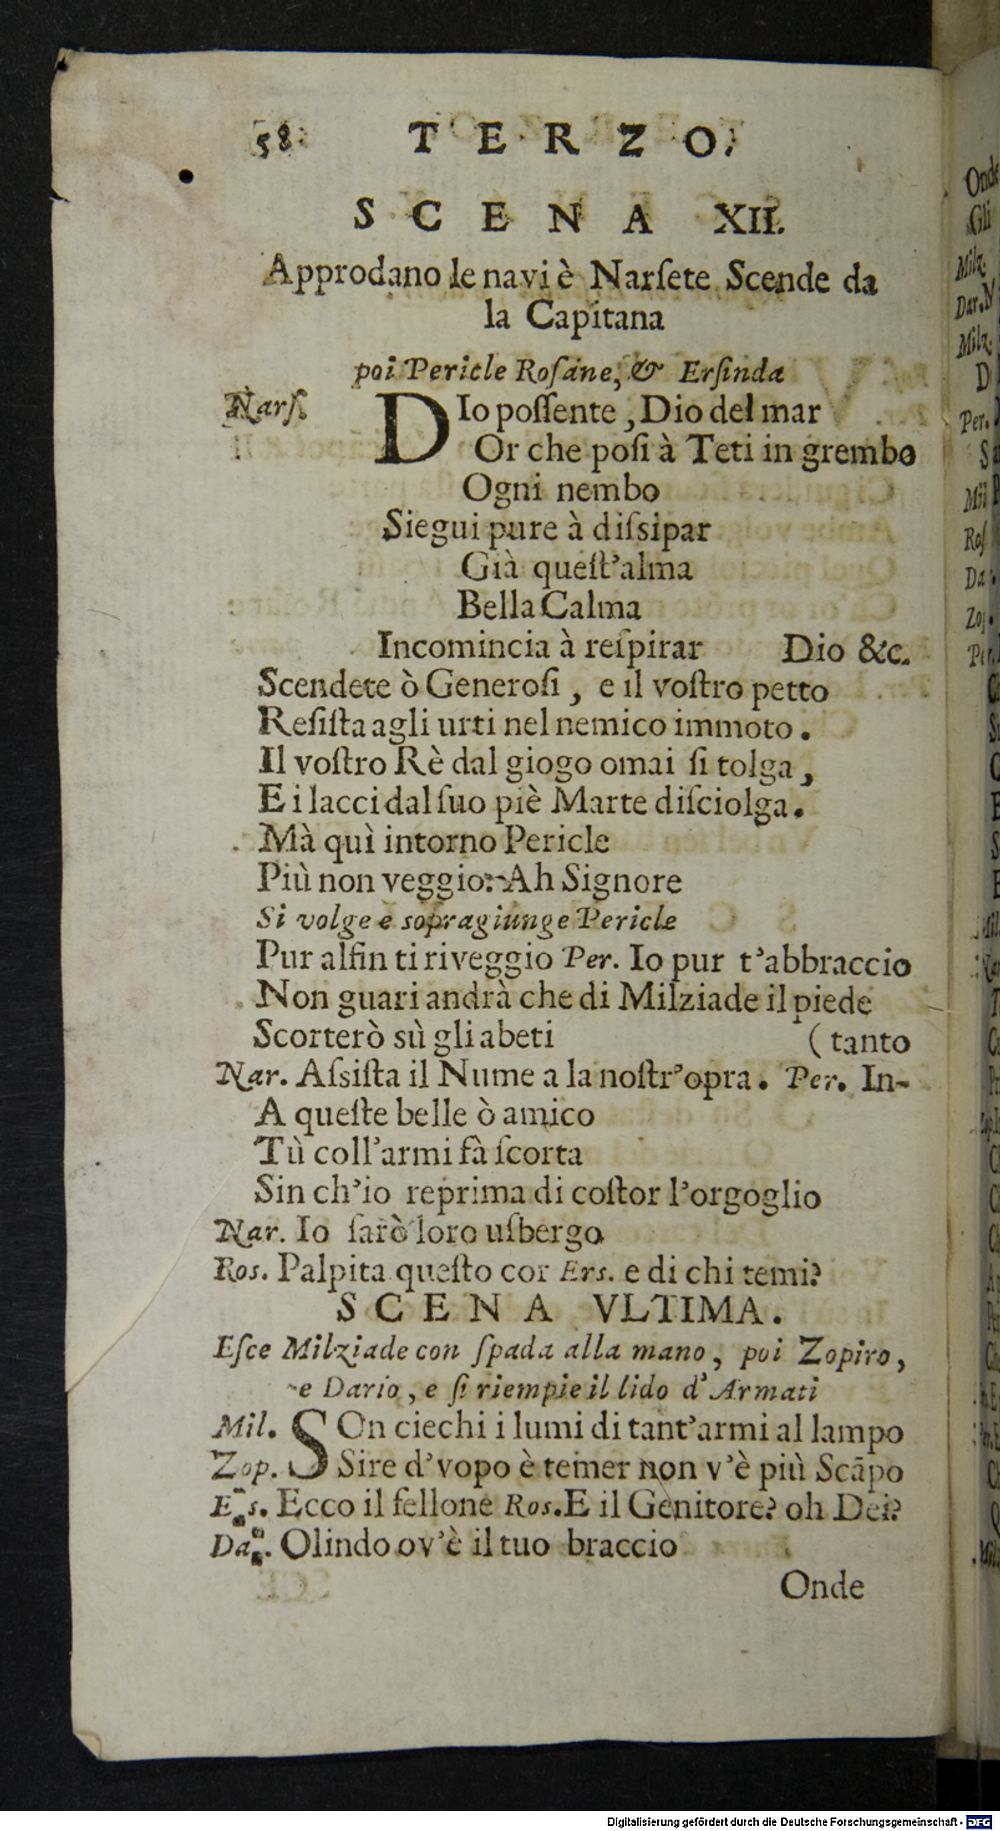 58 TERZO.
SCENA XII.
Approdano le navi è Narſete Scende da
la Capitana
poi Pericle Roſane, & Erſinda
Narſ. DIo poſſente, Dio del mar
Or che poſi à Teti in grembo
Ogni nembo
Siegui pure à diſsipar
Già queſt'alma
Bella Calma
Incomincia à reſpirar Dio &c.
Scendete ò Generoſi, e il voſtro petto
Reſiſta agli urti nel nemico immoto.
Il voſtro Rè dal giogo omai ſi tolga,
E i lacci dal ſuo piè Marte diſciolga.
Mà quì intorno Pericle
Più non veggio: Ah Signore
Si volge e sopragiunge Pericle
Pur alfin ti riveggio Per. Io pur t'abbraccio
Non guari andrà che di Milziade il piede
Scorterò sù gli abeti (tanto
Nar. Aſsiſta il Nume a la noſtr'opra. Per. In-
A queſte belle ò amico
Tù coll'armi fà ſcorta
Sin ch'io reprima di coſtor l'orgoglio
Nar. Io ſarò loro uſbergo
Ros. Palpita queſto cor Ers. e di chi temi?
SCENA VLTIMA.
Eſce Milziade con ſpada alla mano, poi Zopiro,
e Dario, e ſi riempie il lido d'Armati
Mil. SOn ciechi i lumi di tant'armi al lampo
Zop. Sire d'vopo è temer non v'è più Scãpo
Ers. Ecco il fellone Ros. E il Genitore? oh Dei?
Dar. Olindo ov'è il tuo braccio
Onde
Onde
Gli
Milz.
Dar. N
Milz.
D
Per.
Digitalisierung gefördert durch die Deutsche Forschungsgemeinschaft - DFG